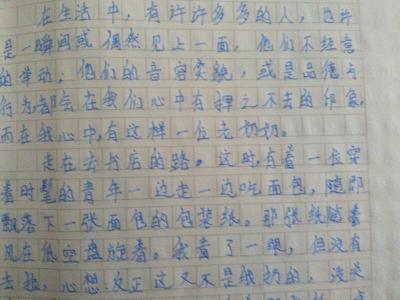 在生活中，有许许多多的人，也许
是一瞬间或偶然见上一面，他们不经意
的举动，他们的音容笑貌，或是品德与
行为，都会在我们心中有挥之不去的印象，
而在我心中，有这样一位老奶奶。
走在去书店的路。这时，有着一位穿
着时髦的青年一边走一边吃面包，随即
飘落下一张面包的包装纸。那张纸随着
风在低空盘旋着。我看了一眼，但没有
去捡，心想：反正这又不是我扔的，没